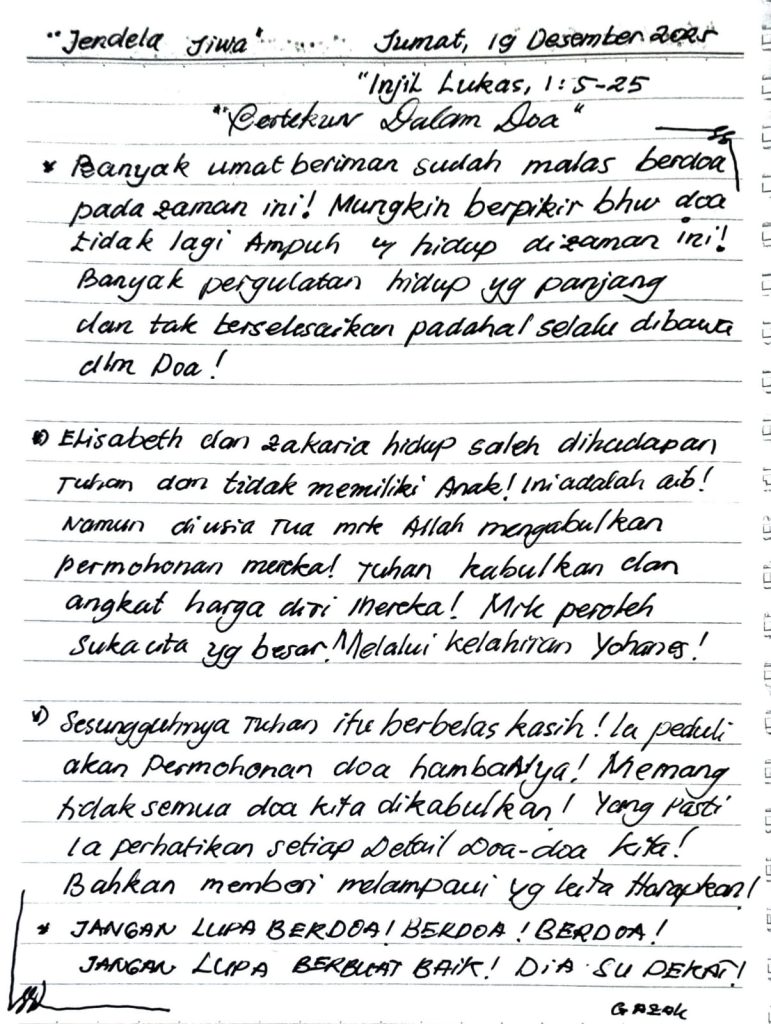 "Jendela Jiwa" Jumat, 19 Desember 2025
"Injil Lukas, 1:5-25
"Bertekun Dalam Doa"
* Banyak umat beriman sudah malas berdoa
pada zaman ini! Mungkin berpikir bhw doa
tidak lagi Ampuh hidup dizaman ini!
Banyak pergulatan hidup yg panjang
dan tak terselesaikan padahal selalu dibawa
dlm Doa!
*) Elisabeth dan Zakaria hidup saleh dihadapan
Tuhan dan tidak memiliki Anak! Ini adalah aib!
Namun diusia Tua mrk Allah mengabulkan
permohonan mereka! Tuhan kabulkan dan
angkat harga diri mereka! Mrk peroleh
sukacita yg besar! Melalui kelahiran Yohanes!
*) Sesungguhnya Tuhan itu berbelas kasih! Ia peduli
akan Permohonan doa hambaNya! Memang
tidak semua doa kita dikabulkan! Yang Pasti
Ia perhatikan setiap Detail Doa-doa kita!
Bahkan memberi melampaui yg kita Harapkan!
* JANGAN LUPA BERDOA! BERDOA! BERDOA!
JANGAN LUPA BERBUAT BAIK! DIA SU DEKAT!